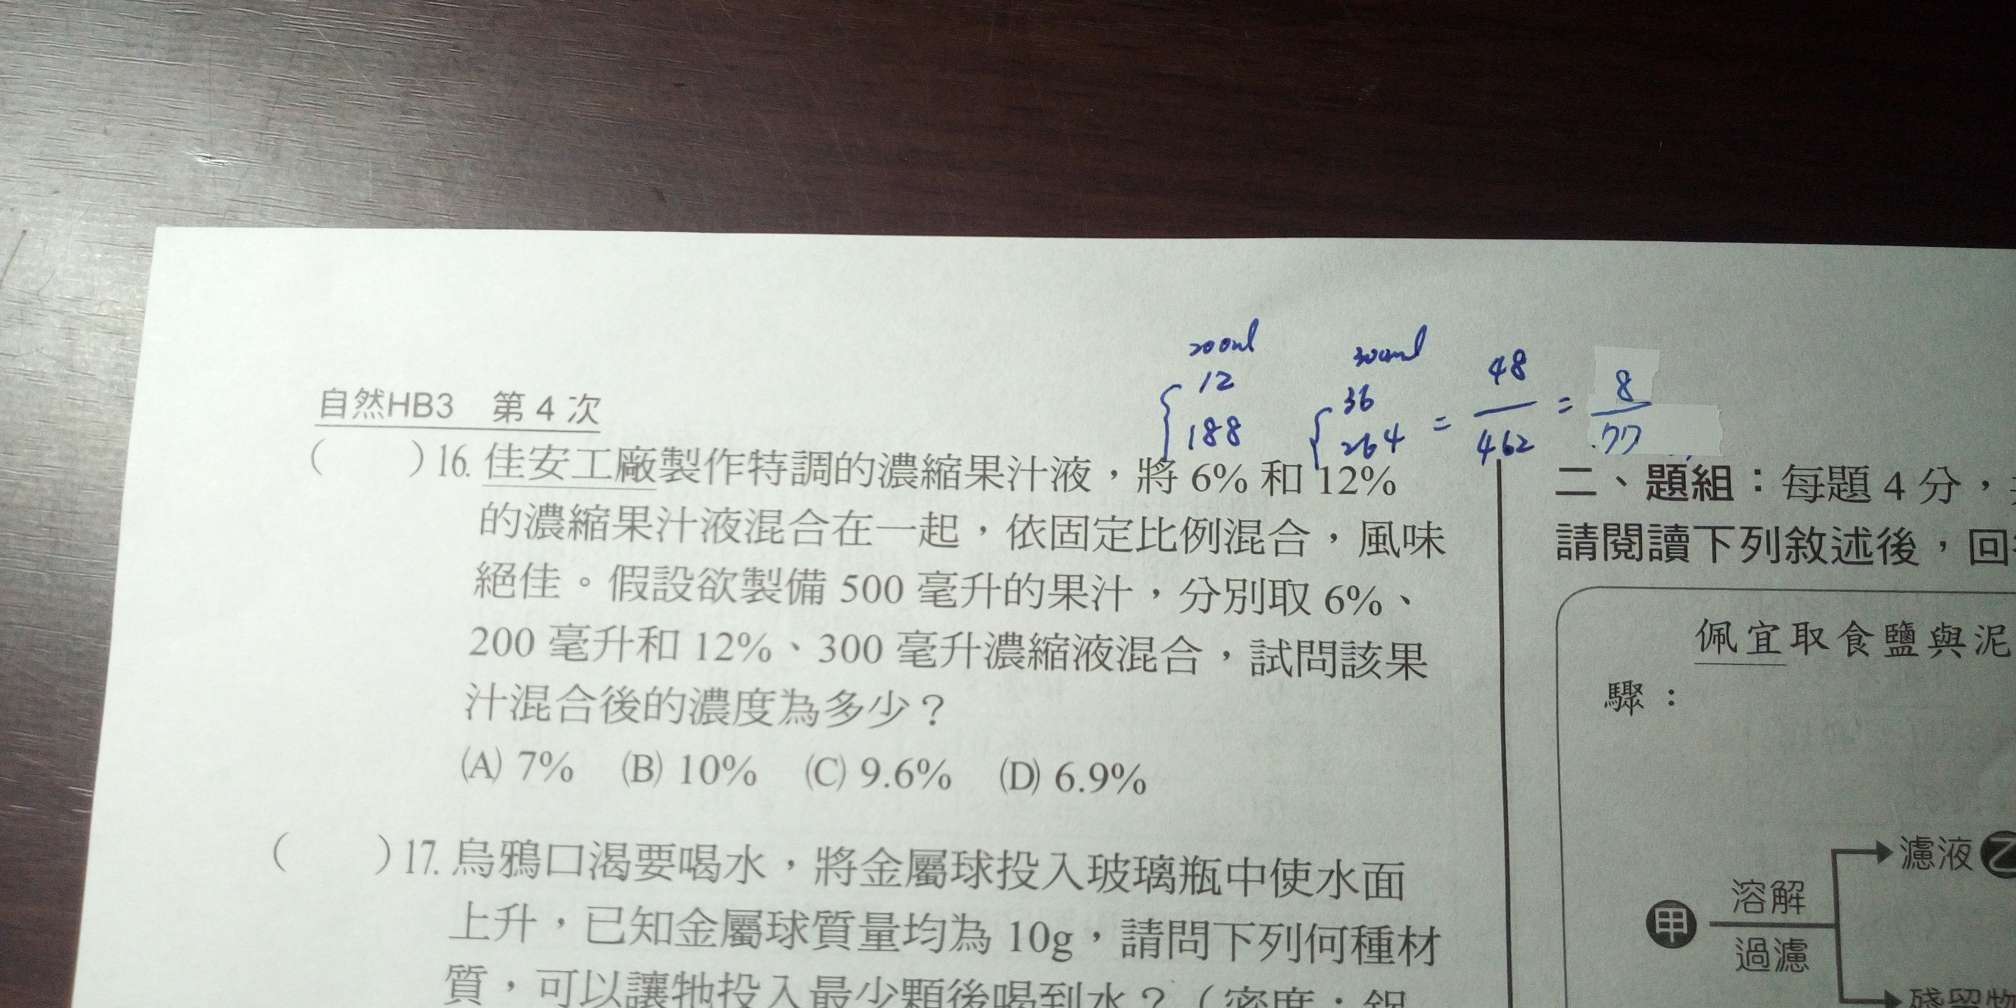 200ml 300ml
12 36 48 8
188 264 = 462 = 77
自然HB3 第 4 次
( )16. 佳安工廠製作特調的濃縮果汁液，將 6% 和 12%
的濃縮果汁液混合在一起，依固定比例混合，風味
絕佳。假設欲製備 500 毫升的果汁，分別取 6%、
200 毫升和 12%、300 毫升濃縮液混合，試問該果
汁混合後的濃度為多少？
(A) 7% (B) 10% (C) 9.6% (D) 6.9%
( )17. 烏鴉口渴要喝水，將金屬球投入玻璃瓶中使水面
上升，已知金屬球質量均為 10g，請問下列何種材
質，可以讓牠投入最少顆後喝到水？（密度：鋁
二、題組：每題 4 分，
請閱讀下列敘述後，回
佩宜取食鹽與泥
驟：
濾液 乙
溶解
甲
過濾
殘留物